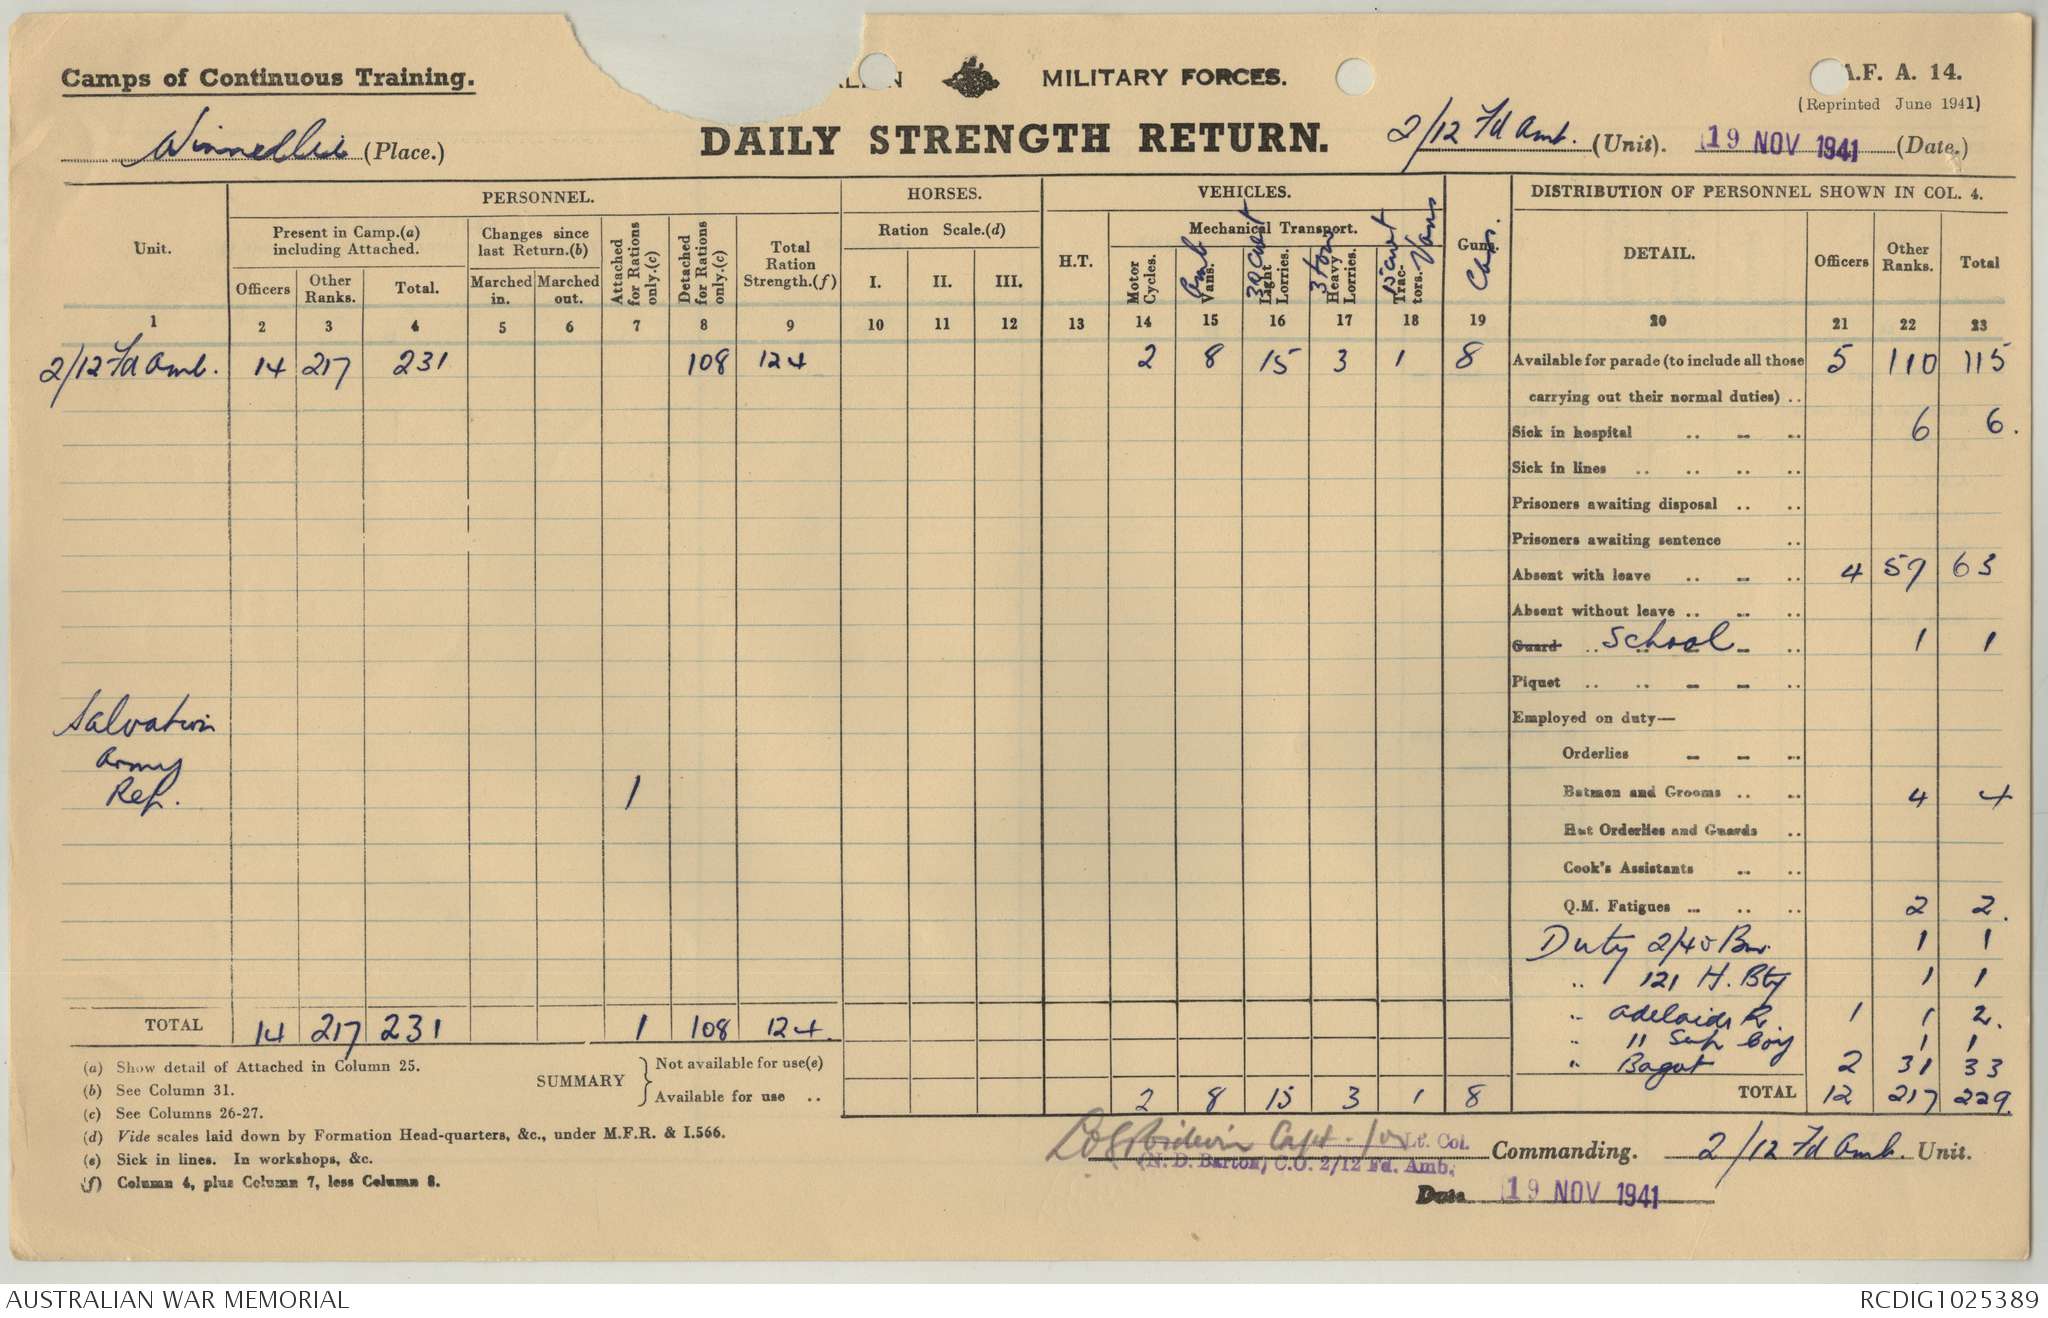 Camps of Continuous Training.
MILITARY FORCES.
A.F. A. 14.
(Reprinted June 1941)
Winnellie (Place.)
DAILY STRENGTH RETURN.
2/12 Fd Amb. (Unit).
19 NOV 1941 (Date.)
Unit.
PERSONNEL.
HORSES.
VEHICLES.
Guns.
Cars.
DISTRIBUTION OF PERSONNEL SHOWN IN COL. 4.
Present in Camp.(a) including Attached.
Changes since last Return.(b)
Attached for Rations only.(c)
Detached for Rations only.(c)
Total Ration Strength.(f)
Ration Scale.(d)
H.T.
Mechanical Transport.
DETAIL.
Officers
Other Ranks.
Total
Officers
Other Ranks.
Total.
Marched in.
Marched out.
I.
II.
III.
Motor Cycles.
Amb Vans.
30 cwt Light Lorries.
3 ton Heavy Lorries.
15 cwt Vans Tractors.
1 2 3 4 5 6 7 8 9 10 11 12 13 14 15 16 17 18 19 20 21 22 23
2/12 Fd Amb. 14 217 231 108 124 2 8 15 3 1 8
Available for parade (to include all those carrying out their normal duties) .. 5 110 115
Sick in hospital 6 6.
Sick in lines
Prisoners awaiting disposal
Prisoners awaiting sentence
Absent with leave 4 59 63
Absent without leave
Guard School 1 1
Piquet
Salvation Army Rep. 1
Employed on duty—
Orderlies
Batmen and Grooms 4 4
Hut Orderlies and Guards
Cook's Assistants
Q.M. Fatigues 2 2.
Duty 2/40 Bn. 1 1
" 121 H. Bty 1 1
" Adelaide R. 1 1 2.
" 11 Sup Coy 1 1
" Bagot 2 31 33
TOTAL 12 217 229.
TOTAL 14 217 231 1 108 124.
SUMMARY
Not available for use(e)
Available for use .. 2 8 15 3 1 8
(a) Show detail of Attached in Column 25.
(b) See Column 31.
(c) See Columns 26-27.
(d) Vide scales laid down by Formation Head-quarters, &c., under M.F.R. & I.566.
(e) Sick in lines. In workshops, &c.
(f) Column 4, plus Column 7, less Column 8.
Capt. for Lt. Col.
(N. D. Barton) C.O. 2/12 Fd. Amb.
Commanding. 2/12 Fd Amb. Unit.
Date 19 NOV 1941
AUSTRALIAN WAR MEMORIAL
RCDIG1025389